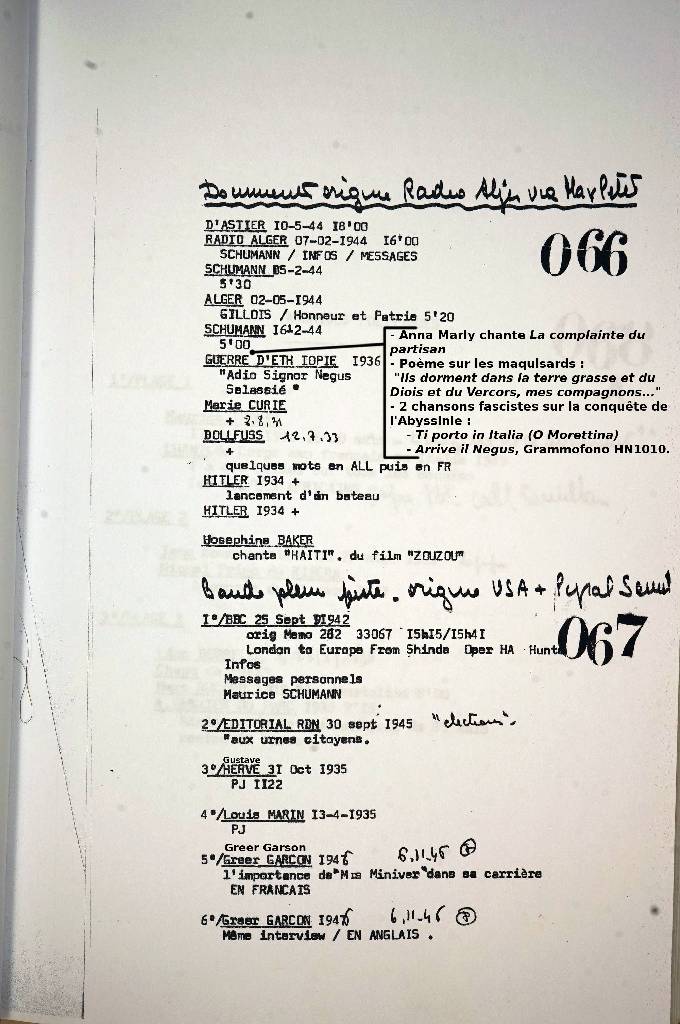 Document origine Radio Alger via Max Petit
D'ASTIER I0-5-44 I8'00
RADIO ALGER 07-02-I944 I6'00
SCHUMANN / INFOS / MESSAGES
066
SCHUMANN 05-2-44
5'30
ALGER 02-05-I944
GILLOIS / Honneur et Patrie 5'20
SCHUMANN I612-44
5'00
GUERRE D'ETH IOPIE I936
"Adio Signor Negus
Selassié "
- Anna Marly chante La complainte du
partisan
- Poème sur les maquisards :
"Ils dorment dans la terre grasse et du
Diois et du Vercors, mes compagnons..."
- 2 chansons fascistes sur la conquête de
l'Abyssinie :
- Ti porto in Italia (O Morettina)
- Arrive il Negus, Grammofono HN1010.
Marie CURIE
+ 2.8.31
DOLLFUSS 12.7.33
+
quelques mots en ALL puis en FR
HITLER I934 +
lancement d'un bateau
HITLER I934 +
Josephine BAKER
chante "HAITI". du film "ZOUZOU"
Bande pleine piste. origine USA +
067
I°/BBC 25 Sept I942
orig Memo 262 33067 I5hI5/I5h4I
London to Europe From Shinda Oper HA Hunt
Infos
Messages personnels
Maurice SCHUMANN
2°/EDITORIAL RDN 30 sept I945 "elections".
"aux urnes citoyens.
Gustave
3°/HERVE 3I Oct I935
PJ II22
4°/Louis MARIN I3-4-I935
PJ
Greer Garson
5°/Greer GARCON I946 6.11.46
l'importance de"Mrs Miniver"dans sa carrière
EN FRANCAIS
6°/Greer GARCON I946 6.11.46
Même interview / EN ANGLAIS .